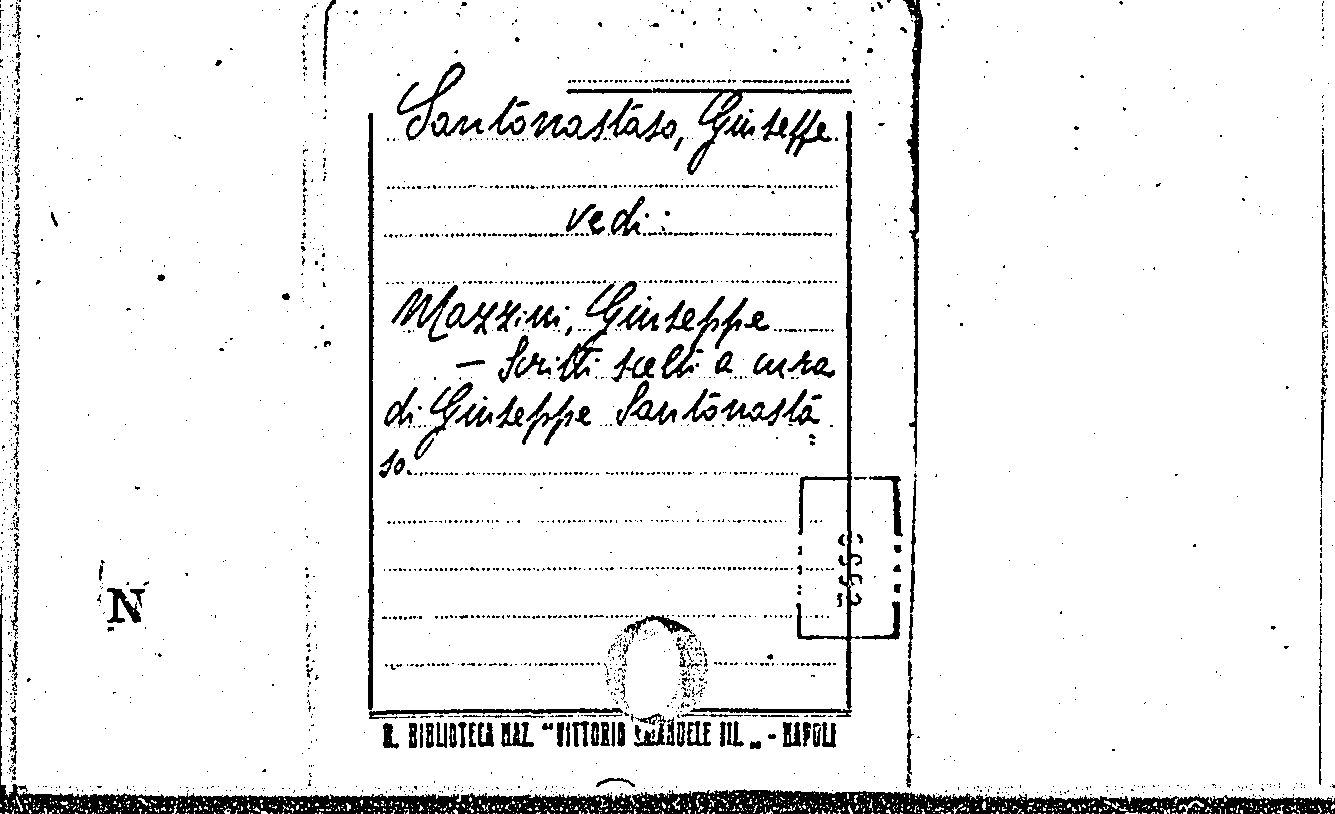 Santonastaso, Giuseppe.
vedi:
Mazzini, Giuseppe
— Scritti scelti a cura
di Giuseppe Santonasta=
so.
N
R. BIBLIOTECA NAZ. "VITTORIO EMANUELE III. „ - NAPOLI